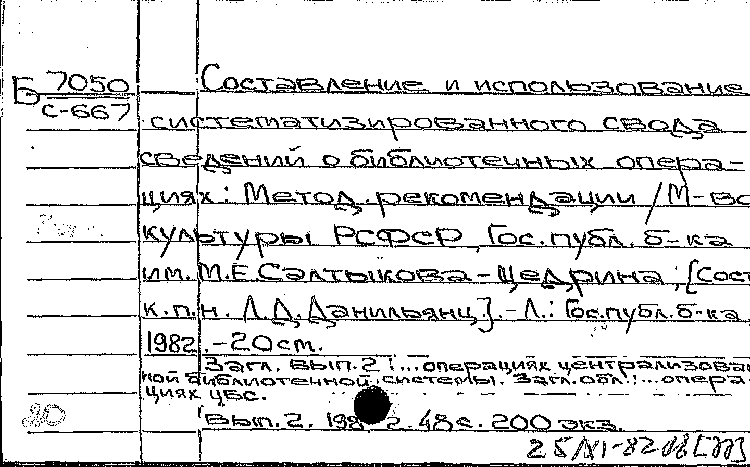 Б 7050
с-667
Составление и использование
систематизированного свода
сведений о библиотечных опера-
циях: Метод. рекомендации / М-во
культуры РСФСР, Гос. публ. б-ка
им. М.Е. Салтыкова-Щедрина; [Сост.
к.п.н. Л.Д. Данильянц]. - Л.: Гос. публ. б-ка
1982. - 20 cm.
Загл. вып. 2: ...операциях централизован
ной библиотечной системы. Загл. обл.: ...опера
циях ЦБС.
Вып. 2. 1982. 48 с. 200 экз.
20
25/XI-82